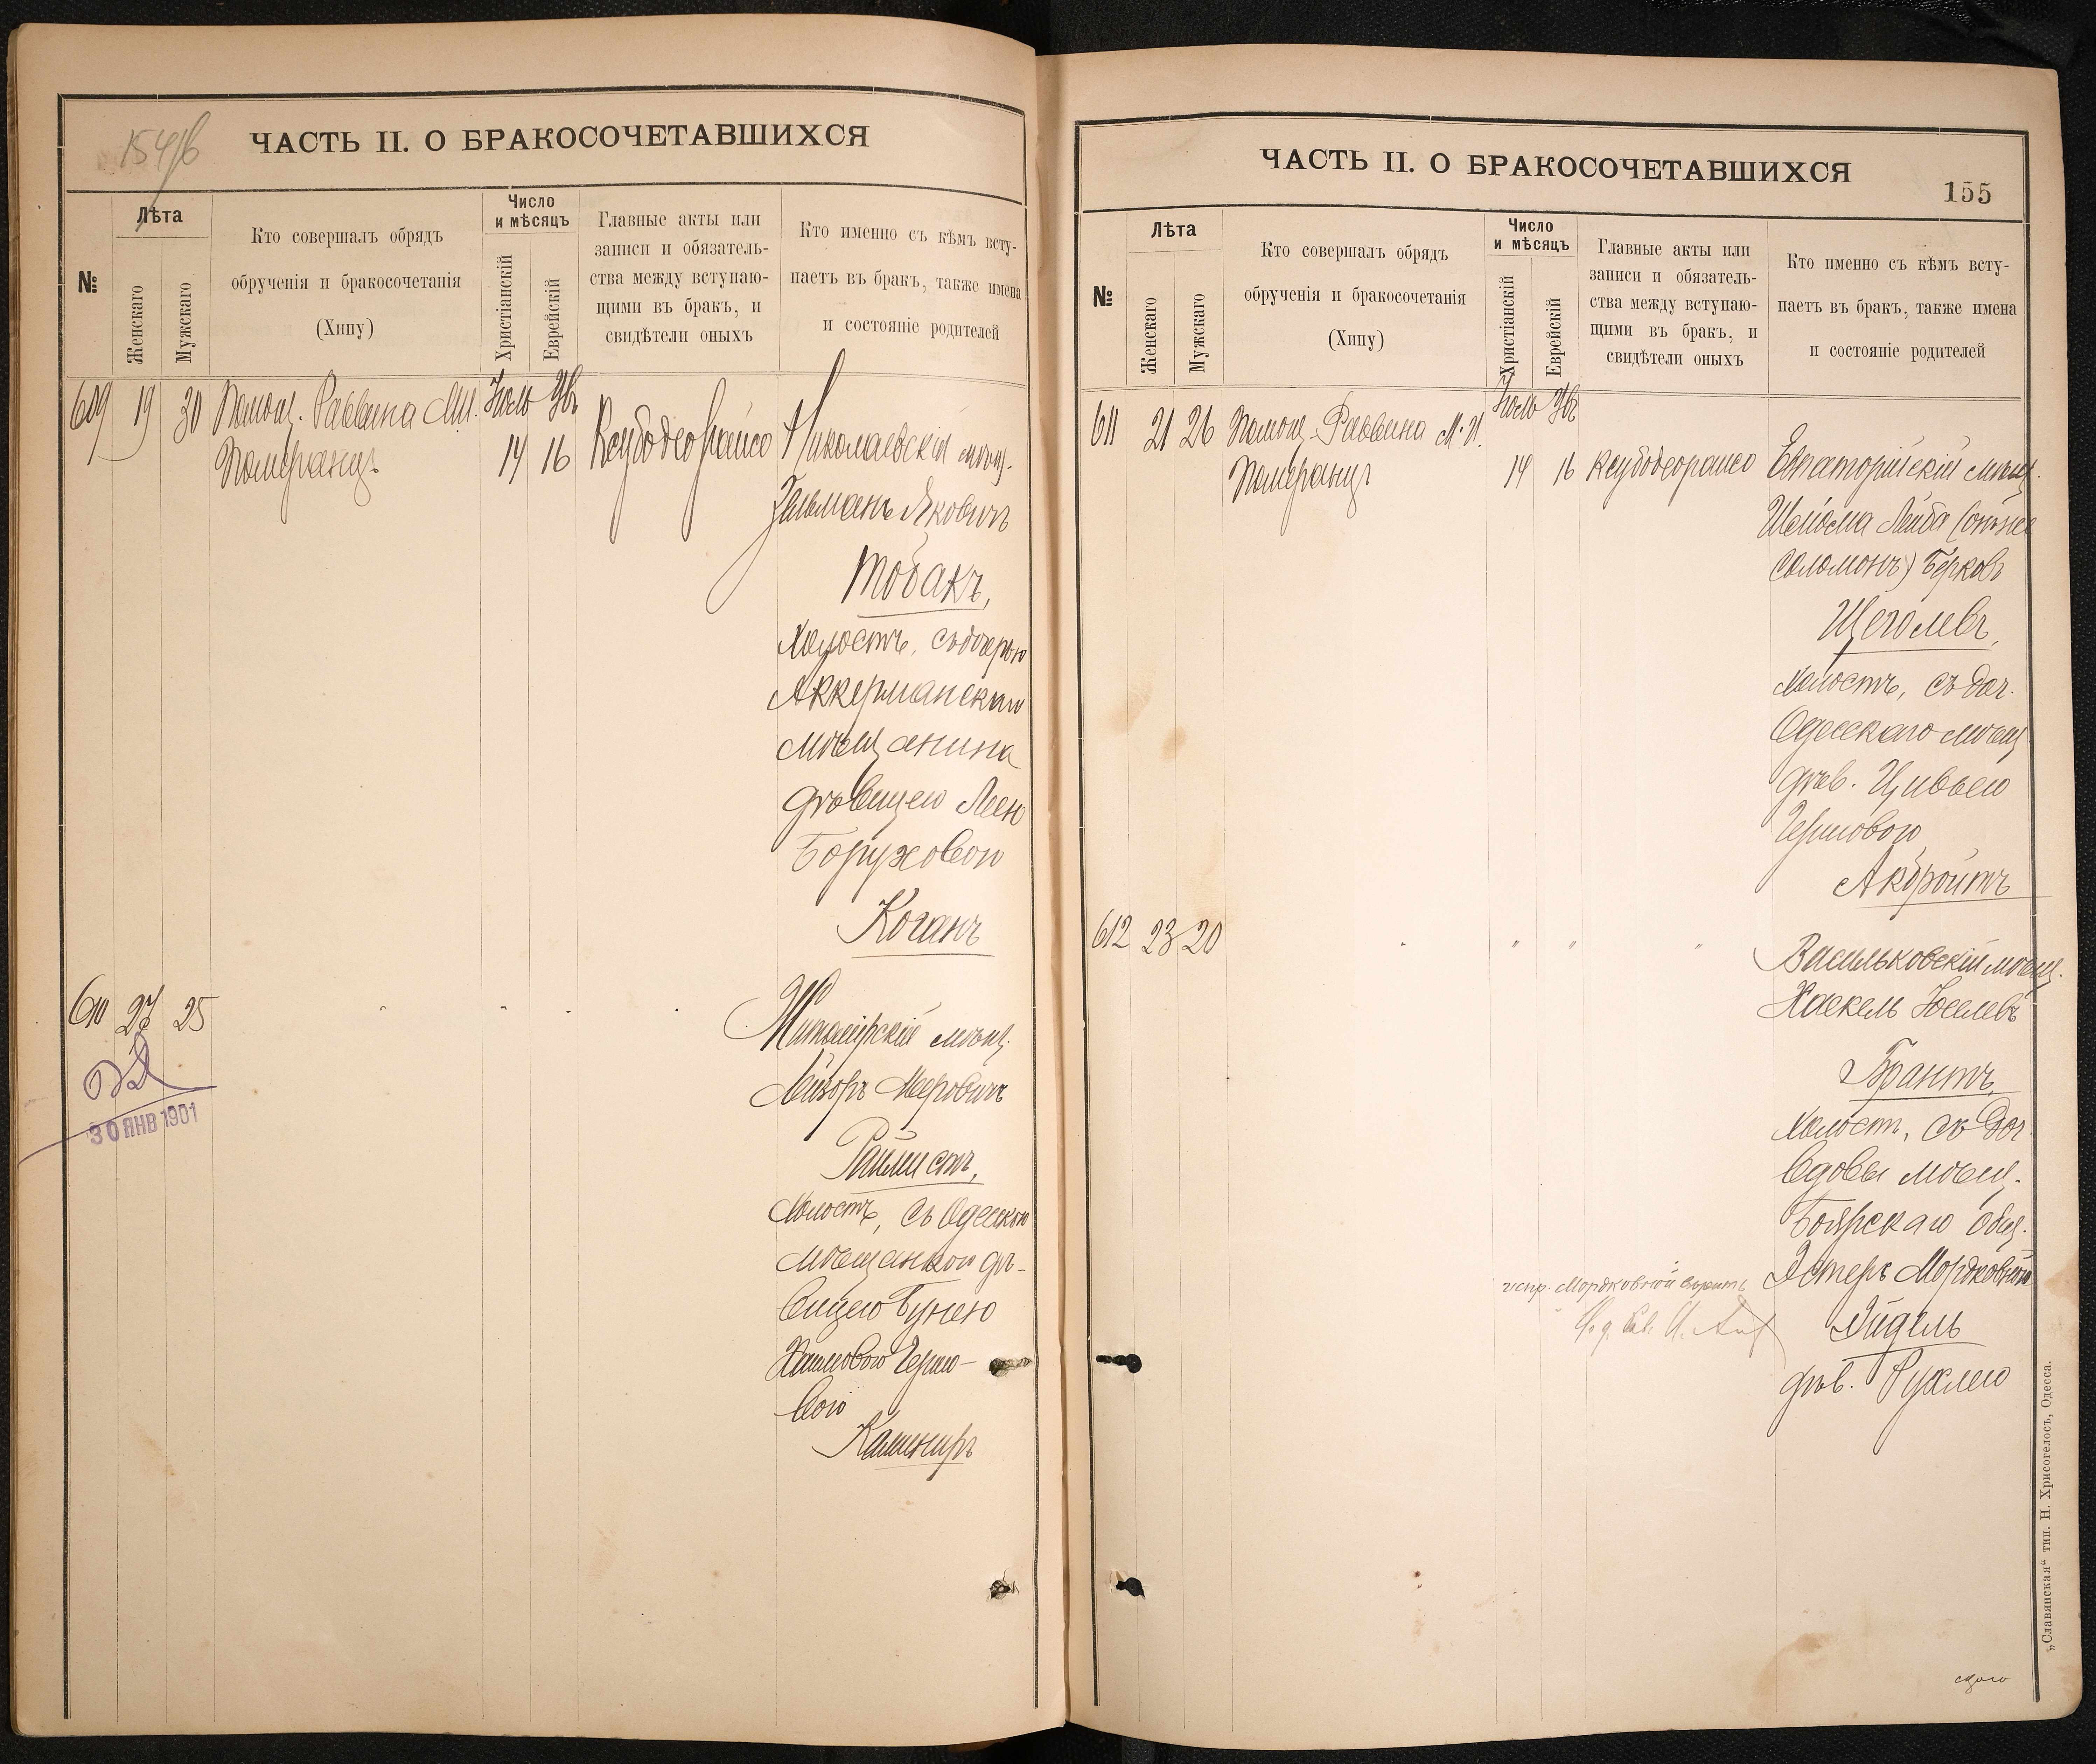 154/б
ЧАСТЬ II. О БРАКОСОЧЕТАВШИХСЯ
№
Лѣта
Женскаго
Мужскаго
Кто совершалъ обрядъ
обрученія и бракосочетанія
(Хипу)
Число
и мѣсяцъ
Христіанскій
Еврейскій
Главные акты или
записи и обязатель-
ства между вступаю-
щими въ бракъ, и
свидѣтели оныхъ
Кто именно съ кѣмъ всту-
паетъ въ бракъ, также имена
и состояніе родителей
609 19 30 Помощ. Раввина М.И.
Померанцъ
Іюль Ѳв
14 16
Ксубодеорайсо
Николаевскій мѣщ.
Зальманъ Яковичъ
Тобакъ,
Холостъ, съ дочерью
Аккерманскаго
мѣщанина
дѣвицею Леею
Боруховою
Коганъ
610 27 25 " " " "
Житомірскій мѣщ.
Лейзоръ Меровичъ
Холостъ, съ Одесскою
мѣщанкою дѣ-
вицею Бунею
Хаимовою Гершо-
вою
30 ЯНВ 1901
ЧАСТЬ II. О БРАКОСОЧЕТАВШИХСЯ
155
№
Лѣта
Женскаго
Мужскаго
Кто совершалъ обрядъ
обрученія и бракосочетанія
(Хипу)
Число
и мѣсяцъ
Христіанскій
Еврейскій
Главные акты или
записи и обязатель-
ства между вступаю-
щими въ бракъ, и
свидѣтели оныхъ
Кто именно съ кѣмъ всту-
паетъ въ бракъ, также имена
и состояніе родителей
611 21 26 Помощ. Раввина М.И.
Померанцъ
Іюль Ѳв
14 16
Ксубодеорайсо
Евпаторійскій мѣщ.
Шлёма Лейба (онъ же
Соломонъ) Берковъ
Щеголевъ,
холостъ, съ доч.
Одесскаго мѣщ
дѣв. Цивьею
Гершовою
Акбройтъ
612 23 20 " " " "
Васильковскій мѣщ.
Хаскель Іоселевъ
Брантъ,
холост, съ доч
вдовы мѣщ.
Боярскаго общ.
Эстеръ Мордковной
Эйдель
дѣв. Рухлею
испр. Мордковной вѣрить
„Славянская“ тип. Н. Хрисогелосъ, Одесса.